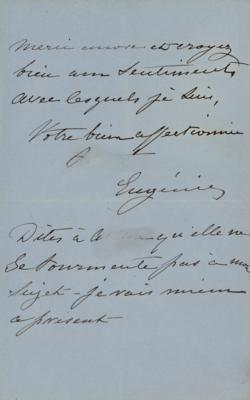 Merci encore et croyez
bien aux sentiments
avec lesquels je suis,
Votre bien affectionnée
Eugénie
Dites à qu'elle ne
se tourmente pas à mon
sujet - je vais mieux
à présent